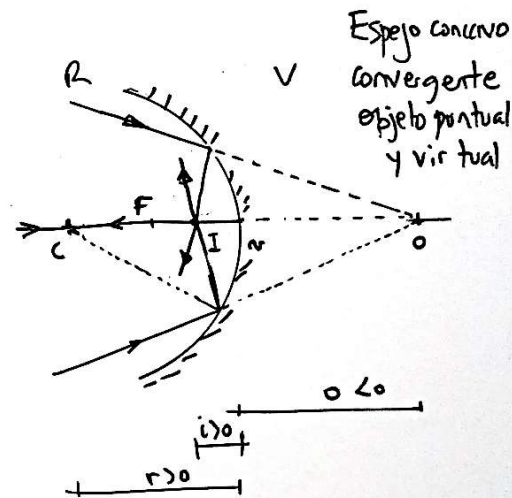 Espejo concavo
R
V
convergente
objeto puntual
y virtual
F
C
I
v
o
o <0
i>0
r>0